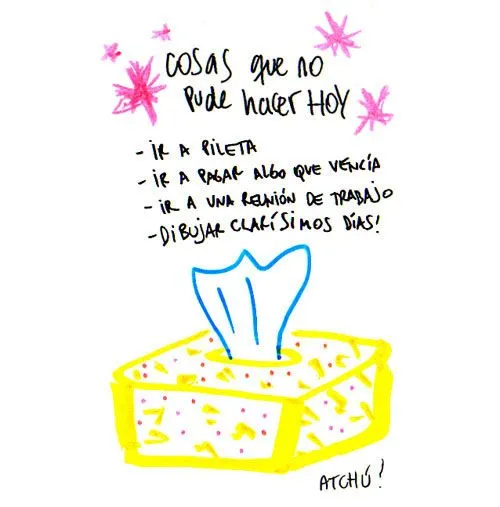 COSAS que no
Pude hacer HOY
- IR A PILETA
- IR A PAGAR ALGO QUE VENCÍA
- IR A UNA REUNIÓN DE TRABAJO
- DIBUJAR CLARÍSIMOS DÍAS!
ATCHÚ!